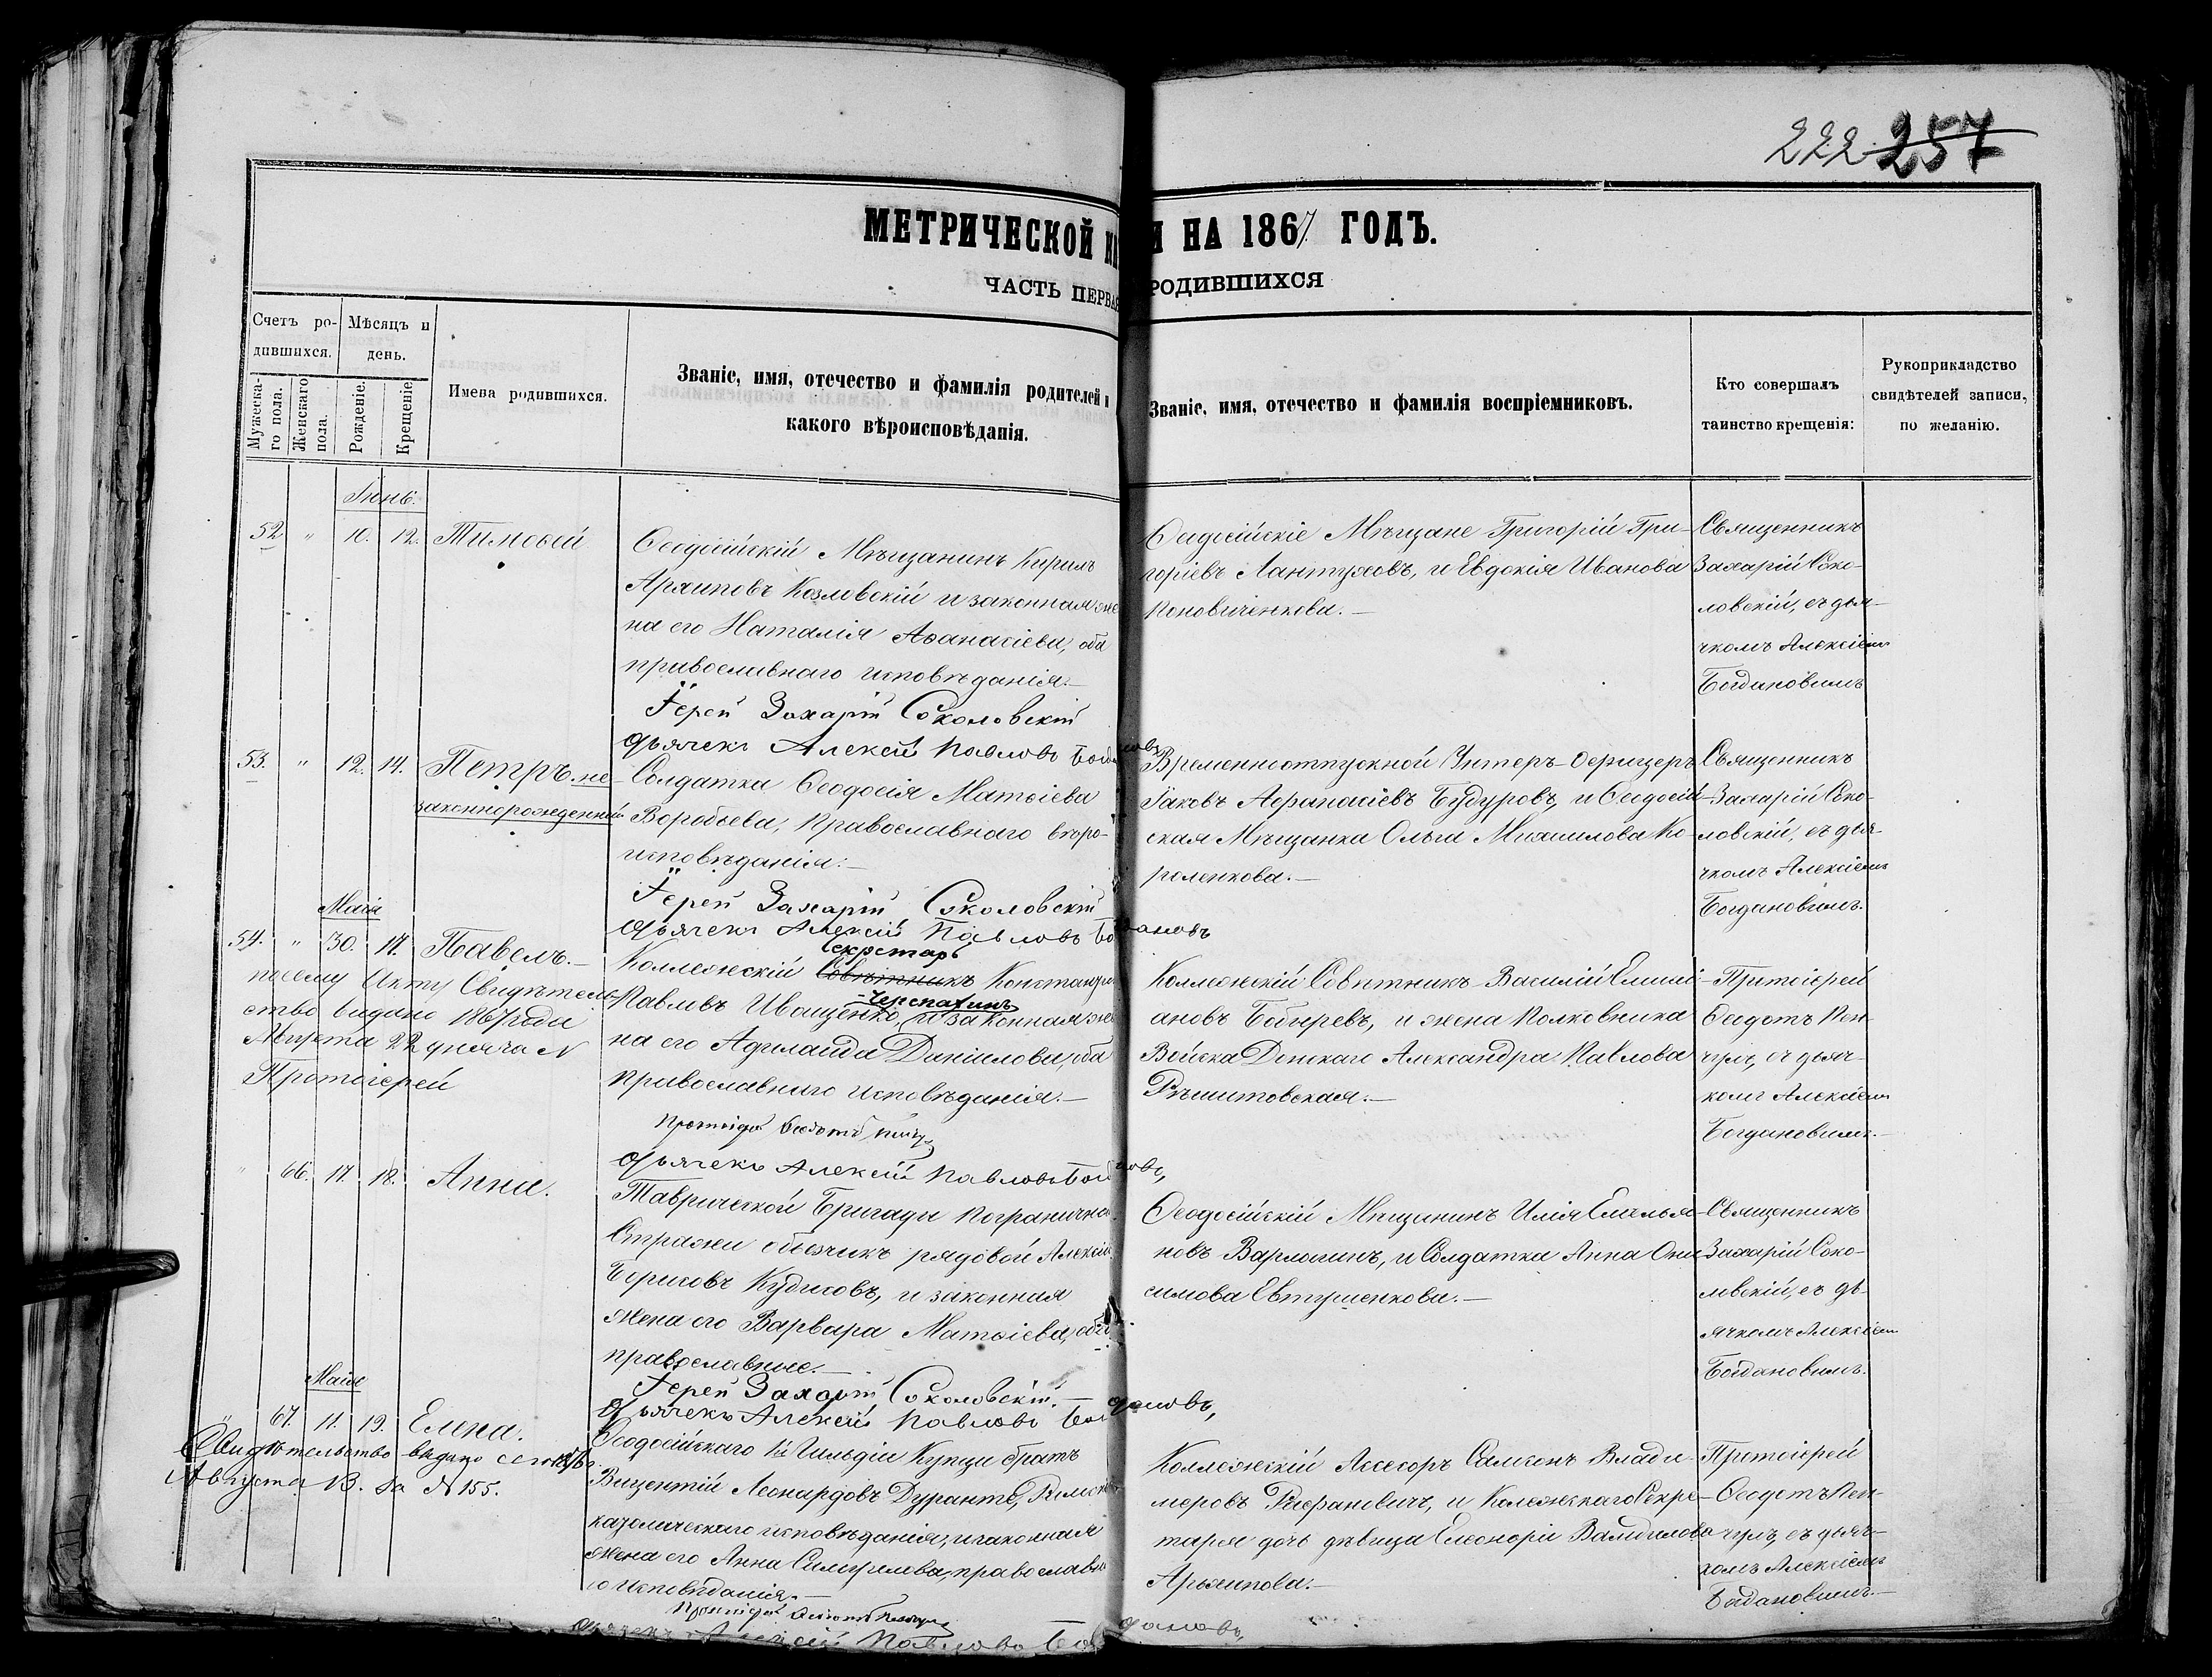 222 257
МЕТРИЧЕСКОЙ КН И НА 1867 ГОДЪ.
ЧАСТЬ ПЕРВАЯ РОДИВШИХСЯ
Счетъ ро-
дившихся.
Мужеска-
го пола.
Женскаго
пола.
Мѣсяцъ и
день.
Рожденіе.
Крещеніе.
Имена родившихся.
Званіе, имя, отечество и фамилія родителей и
какого вѣроисповѣданія.
Званіе, имя, отечество и фамилія воспріемниковъ.
Кто совершалъ
таинство крещенія:
Рукоприкладство
свидѣтелей записи,
по желанію.
Іюнь.
52 " 10. 12. Тимоѳей
Ѳеодосійскій Мѣщанинъ Кирилъ
Архиповъ Козловскій и законная же
на его Наталія Аѳанасіева, оба
православнаго исповѣданія.—
Іерей Захарій Соколовскій
дьячекъ Алексѣй Павловъ Богдановъ
Ѳеодосійскіе Мѣщане Григорій Гри-
горіевъ Лантуховъ, и Евдокія Иванова
Коновиченкова.—
Священникъ
Захарій Соко-
ловскій, съ дья-
чкомъ Алексіемъ
Богдановымъ
53. " 12. 14. Петръ. не-
законнорожденный
Солдатка Ѳеодосія Матѳіева
Воробьева, Православнаго вѣро-
исповѣданія:—
Іерей Захарій Соколовскій
дьячекъ Алексѣй Павловъ Богдановъ
Временноотпускной Унтеръ-Офицеръ
Іаковъ Афанасіевъ Будуровъ, и Ѳеодосій-
ская Мѣщанка Ольга Михаилова Ко-
роленкова.—
Священникъ
Захарій Соко-
ловскій, съ дья-
чкомъ Алексіемъ
Богдановымъ.
Маія
54. " 30. 17. Павелъ.—
посему Акту Свидѣтель-
ство видано 1867 года
Августа 22 дня за №
Протоіерей
Секретарь
Коллежскій Совѣтникъ Константинъ
-Черепахинъ
Павловъ Иващенко, и законная же
на его Аделаида Даніилова, оба
Православнаго исповѣданія.—
Протоіерей Ѳеодотъ
дьячекъ Алексѣй Павловъ Богдановъ,
Коллежскій Совѣтникъ Василій Емилі-
ановъ Бобыревъ, и жена Полковника
Войска Донскаго Александра Павлова
Рѣшитовская.—
Протоіерей
Ѳеодотъ Кон-
чулъ, съ дьяч-
комъ Алексіемъ
Богдановымъ.—
" 66. 17. 18. Анна.
Таврической Бригады Пограничной
Стражи объезчикъ рядовой Алексій
Борисовъ Кудисовъ, и законная
жена его Варвара Матѳіева, оба
православные.—
Іерей Захарій Соколовскій.—
дьячекъ Алексѣй Павловъ Богдановъ,
Ѳеодосійскій Мѣщанинъ Илія Емелья-
новъ Варлыгинъ, и Солдатка Анна Они-
симова Евтушенкова.—
Священникъ
Захарій Соко-
ловскій, съ дь-
ячкомъ Алексіемъ
Богдановымъ.
Маія
" 67. 11. 19. Елена.
Свидѣтельство видано
Августа 13. за № 155.
Ѳеодосійскаго 1й Гильдіи Купца братъ
Вицентій Леонардовъ Дуранте, Римско
католическаго исповѣданія, и законная
жена его Анна Самуилова, православна
го Исповѣданія.—
Протоіерей Ѳеодотъ
дьячекъ Алексѣй Павловъ Богдановъ,
Коллежскій Асесоръ Самсонъ Влади-
меровъ Рафановичъ, и Колежскаго Секре-
таря дочь дѣвица Елеонора Валидилова
Архипова.—
Протоіерей
Ѳеодотъ Кон-
чулъ, съ дьяч-
комъ Алексіемъ
Богдановымъ.—